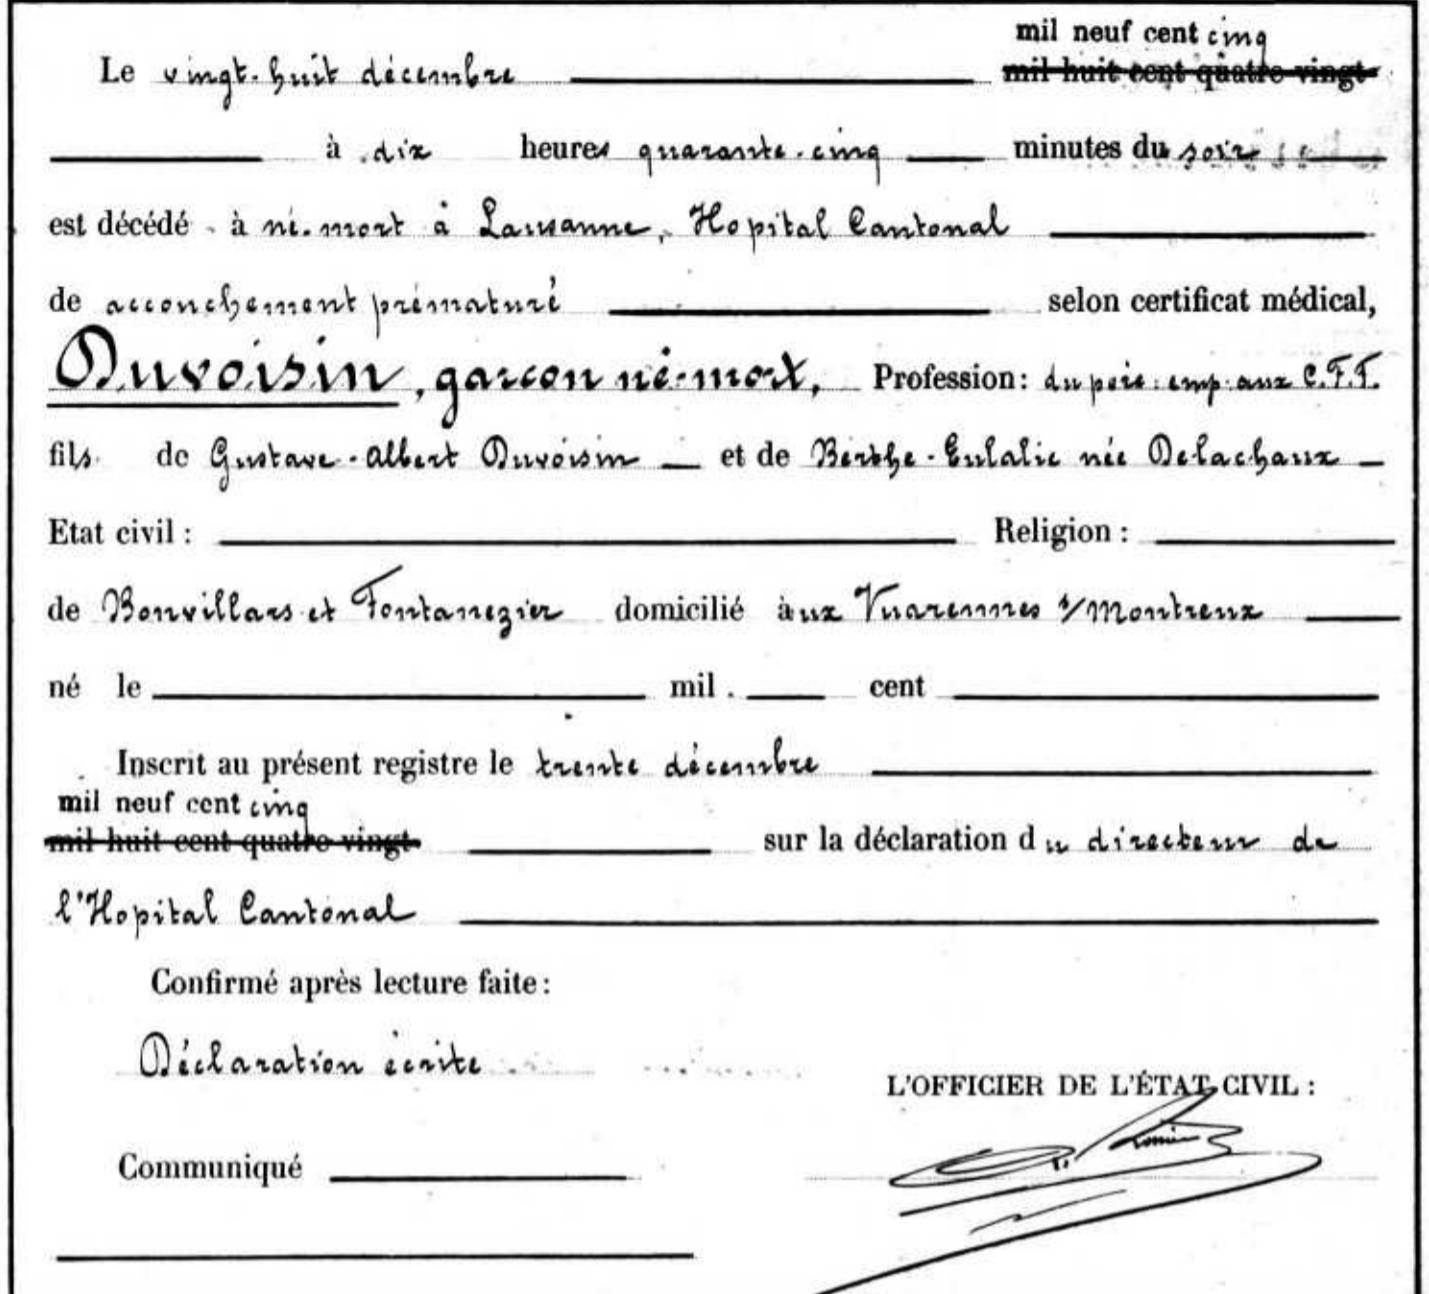 mil neuf cent cinq
Le vingt-huit décembre mil huit cent quatre-vingt
à dix heures quarante-cinq minutes du soir
est décédé à né-mort à Lausanne, Hopital Cantonal
de accouchement prématuré selon certificat médical,
Duvoisin, garçon né-mort, Profession: du père: emp. aux C.F.F.
fils de Gustave-Albert Duvoisin et de Berthe-Eulalie née Delachaux
Etat civil : Religion :
de Bonvillars et Fontanezier domicilié à aux Vuarennes s/Montreux
né le mil cent
Inscrit au présent registre le trente décembre
mil neuf cent cinq
mil huit cent quatre-vingt sur la déclaration du directeur de
l'Hopital Cantonal
Confirmé après lecture faite :
Déclaration écrite
L'OFFICIER DE L'ÉTAT CIVIL :
Communiqué